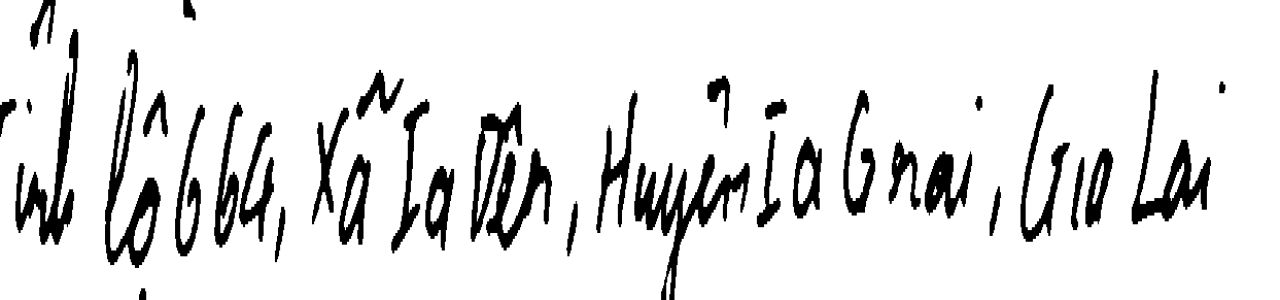 Tỉnh lộ 664, Xã Ia Dêr, Huyện Ia Grai, Gia Lai